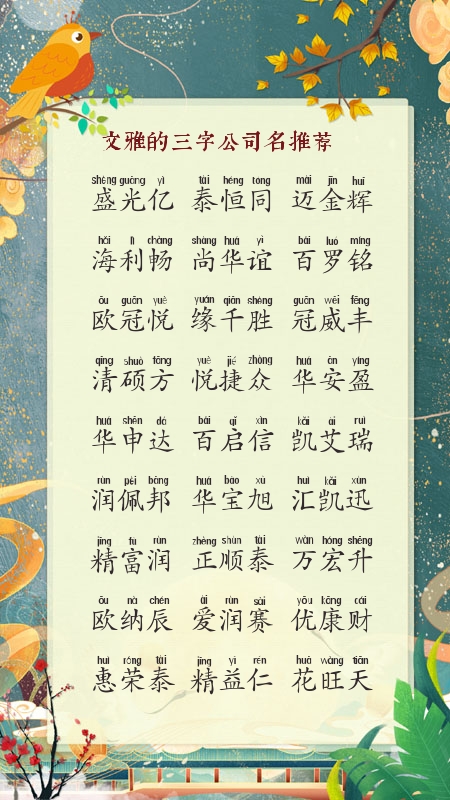 文雅的三字公司名推荐
shèng guāng yì tài héng tóng mài jīn huī
盛光亿 泰恒同 迈金辉
hǎi lì chàng shàng huá yì bǎi luó míng
海利畅 尚华谊 百罗铭
ōu guān yuè yuán qiān shèng guān wēi fēng
欧冠悦 缘千胜 冠威丰
qīng shuò fāng yuè jié zhòng huá ān yíng
清硕方 悦捷众 华安盈
huá shēn dá bǎi qǐ xìn kǎi ài ruì
华申达 百启信 凯艾瑞
rùn pèi bāng huá bǎo xù huì kǎi xùn
润佩邦 华宝旭 汇凯迅
jīng fù rùn zhèng shùn tài wàn hóng shēng
精富润 正顺泰 万宏升
ōu nà chén ài rùn sài yōu kāng cái
欧纳辰 爱润赛 优康财
huì róng tài jīng yì rén huā wàng tiān
惠荣泰 精益仁 花旺天